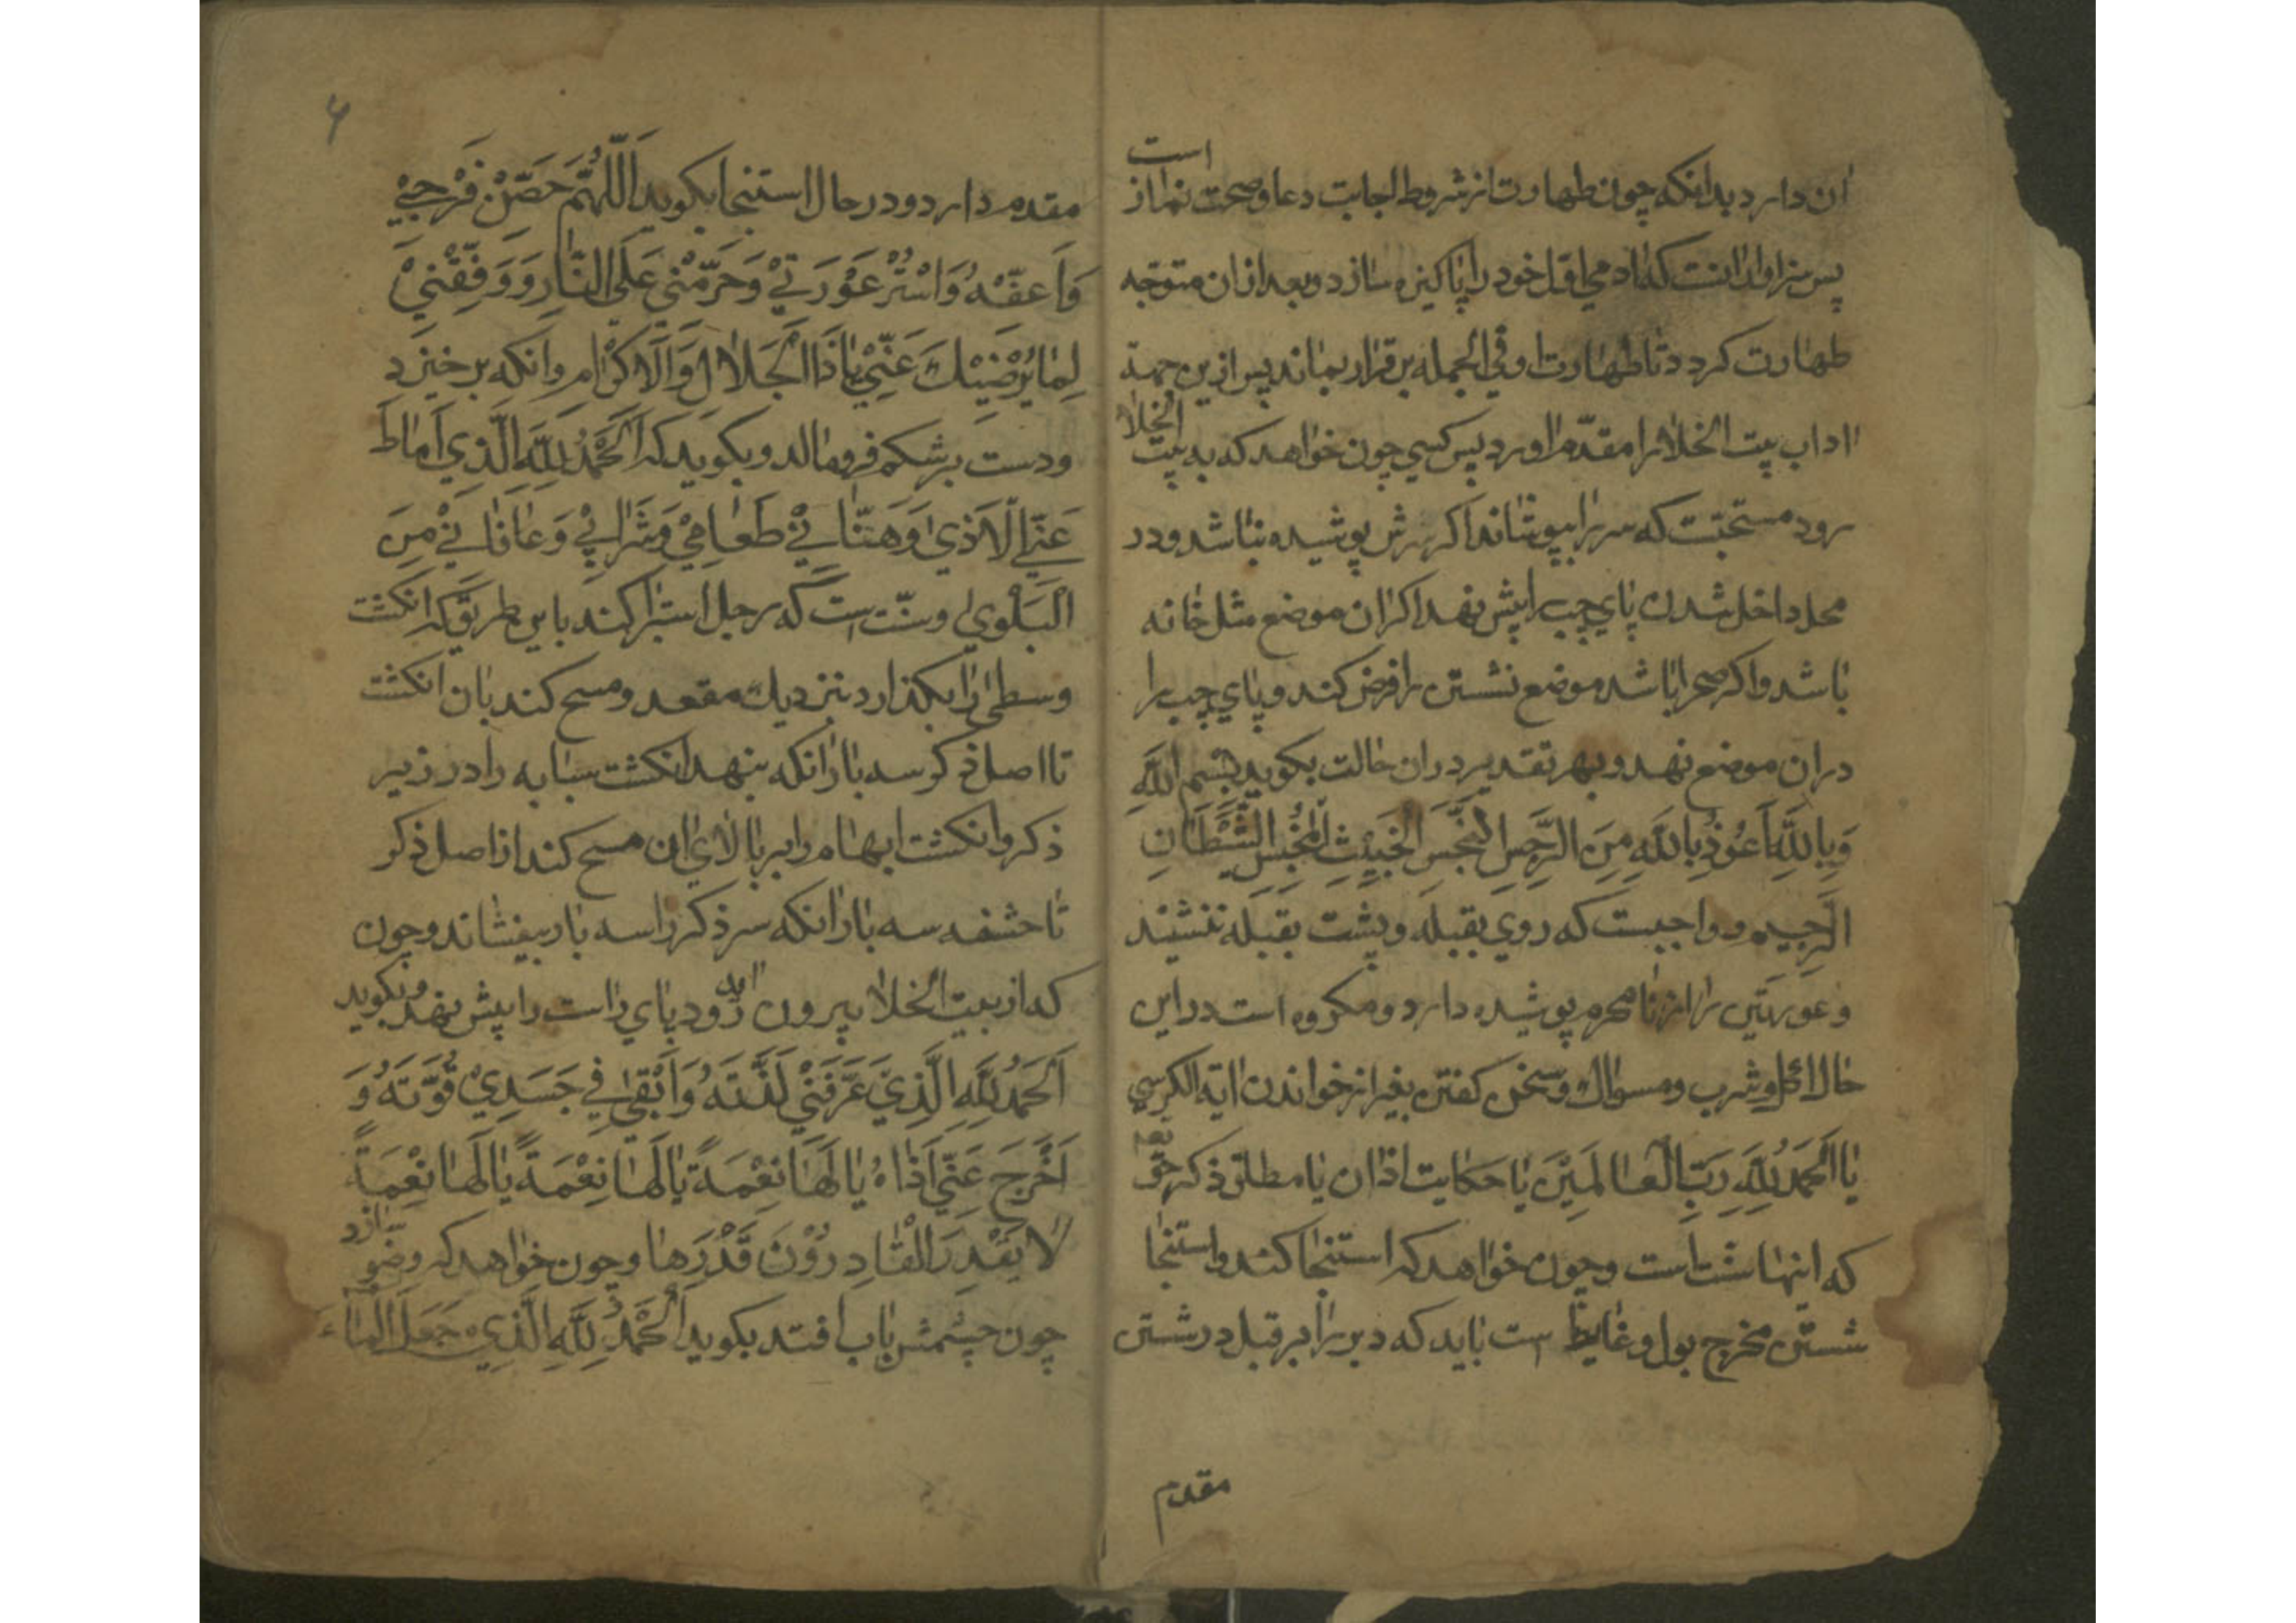 ان دارد بدانکه چون طهارت از شروط اجابت دعا و صحت نماز است
پس سزاوار انست که ادمی اوّل خود را پاکیزه سازد و بعد ازان متوجّه
طهارت کردد تا طهارت او فی الجمله بر قرار بماند پس ازین جهة
اداب بیت الخلا را مقدّم اورد پس کسی چون خواهد که به بیت الخلا
رود مستحبّت که سر را بپوشاند اکر سرش پوشیده نباشد و در
محل داخل شدن پای چپ را پیش نهد اکر ان موضع مثل خانه
باشد و اکر صحرا باشد موضع نشستن را فرض کند و پای چپ را
دران موضع نهد و بهر تقدیر دران حالت بکوید بِسْمِ اللّٰهِ
وَبِاللّٰهِ اَعُوْذُ بِاللّٰهِ مِنَ الرِّجْسِ النَّجِسِ الخَبِيْثِ الْمُخْبِسِ الشَّيْطَانِ
الرَّجِيم و واجبست که روی بقبله و پشت بقبله ننشیند
و عورتَین را از نامحرم پوشیده دارد و مکروه است دراین
حال اکل و شرب و مسواک و سخن کفتن بغیر از خواندن ایة الکرسی
یا اَلحَمدُ لِلّٰهِ رَبِّ الْعالَمِيْنَ یا حکایت اذان یا مطلق ذکر حقّ تعه
که اینها سنّت است و چون خواهد که استنجا کند و استنجا
شستن مخرج بول و غایط است باید که دبر را بر قبل در شستن
مقدم
۶
مقدم دارد و در حال استنجا بکوید اَللّٰهُمَّ حَصِّنْ فَرْجِيْ
وَاَعِفَّهُ وَاسْتُرْ عَوْرَتِيْ وَحَرِّمْنِيْ عَلَى النَّارِ وَوَفِّقْنِيْ
لِمَا يُرْضِيْكَ عَنِّيْ يَا ذَا الْجَلَالِ وَالْاِكْرَامِ وانکه بر خیزد
و دست بر شکم فرو مالد و بکوید که اَلْحَمْدُ لِلّٰهِ الَّذِي اَمَاطَ
عَنِّي الْاَذَى وَهَنَّانِيْ طَعَامِيْ وَشَرَابِيْ وَعَافَانِيْ مِنَ
الْبَلْوَى و سنّت است که رجل استبرا کند باین طریق که انکشت
وسطی را بکذارد نزدیك مقعد و مسح کند بان انکشت
تا اصل ذکر سه بار انکه بنهد انکشت سبابه را در زیر
ذکر و انکشت ابهام را بر بالای ان مسح کند از اصل ذکر
تا حشفه سه بار انکه سر ذکر را سه بار بیفشاند و چون
که از بیت الخلا بیرون رود پای راست را پیش نهد و بکوید
اَلْحَمْدُ لِلّٰهِ الَّذِيْ عَرَّفَنِيْ لَذَّتَهُ وَاَبْقٰى فِي جَسَدِيْ قُوَّتَهُ وَ
اَخْرَجَ عَنِّي اَذَاهُ يَا لَهَا نِعْمَةً يَا لَهَا نِعْمَةً يَا لَهَا نِعْمَةً
لَا يَقْدِرُ الْقَادِرُوْنَ قَدْرَهَا و چون خواهد که وضو سازد
چون چشمش باب افتد بکوید اَلْحَمْدُ لِلّٰهِ الَّذِيْ جَعَلَ الْمَاءَ